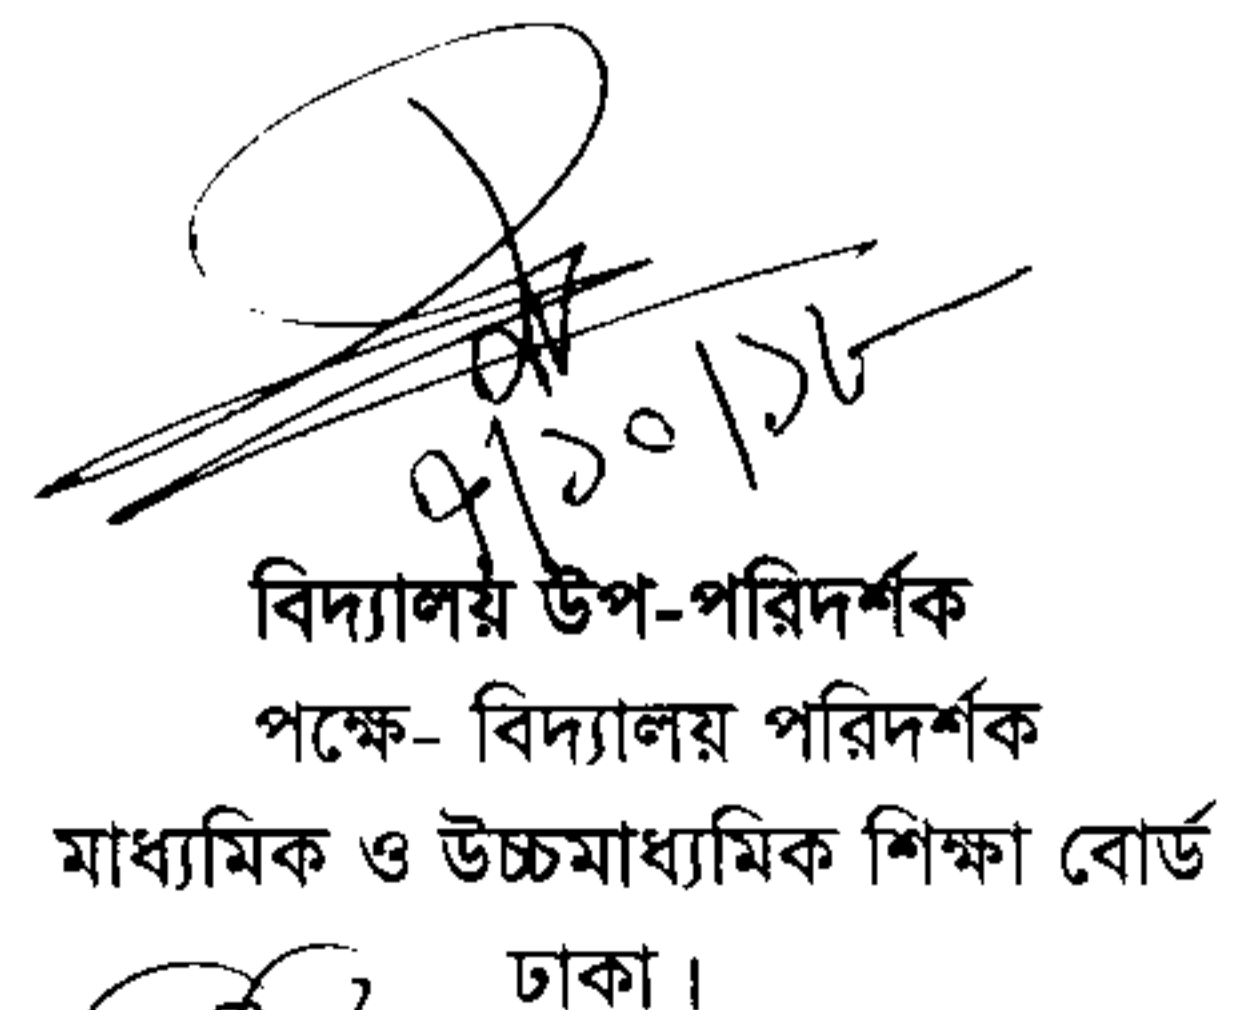 ৭/১০/১৮
বিদ্যালয় উপ-পরিদর্শক
পক্ষে- বিদ্যালয় পরিদর্শক
মাধ্যমিক ও উচ্চমাধ্যমিক শিক্ষা বোর্ড
ঢাকা।